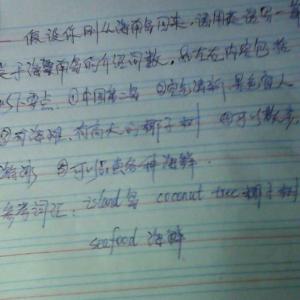 假设你刚从海南岛回来，请用英语写一篇
关于海南岛的介绍词数，80左右内容包括
以下要点：①中国第二岛 ②空气清新，景色宜人
③有海滩，有高大的椰子树 ④可以散步，
游泳 ⑤可以品尝各种海鲜
参考词汇：island岛 coconut tree椰子树
seafood 海鲜